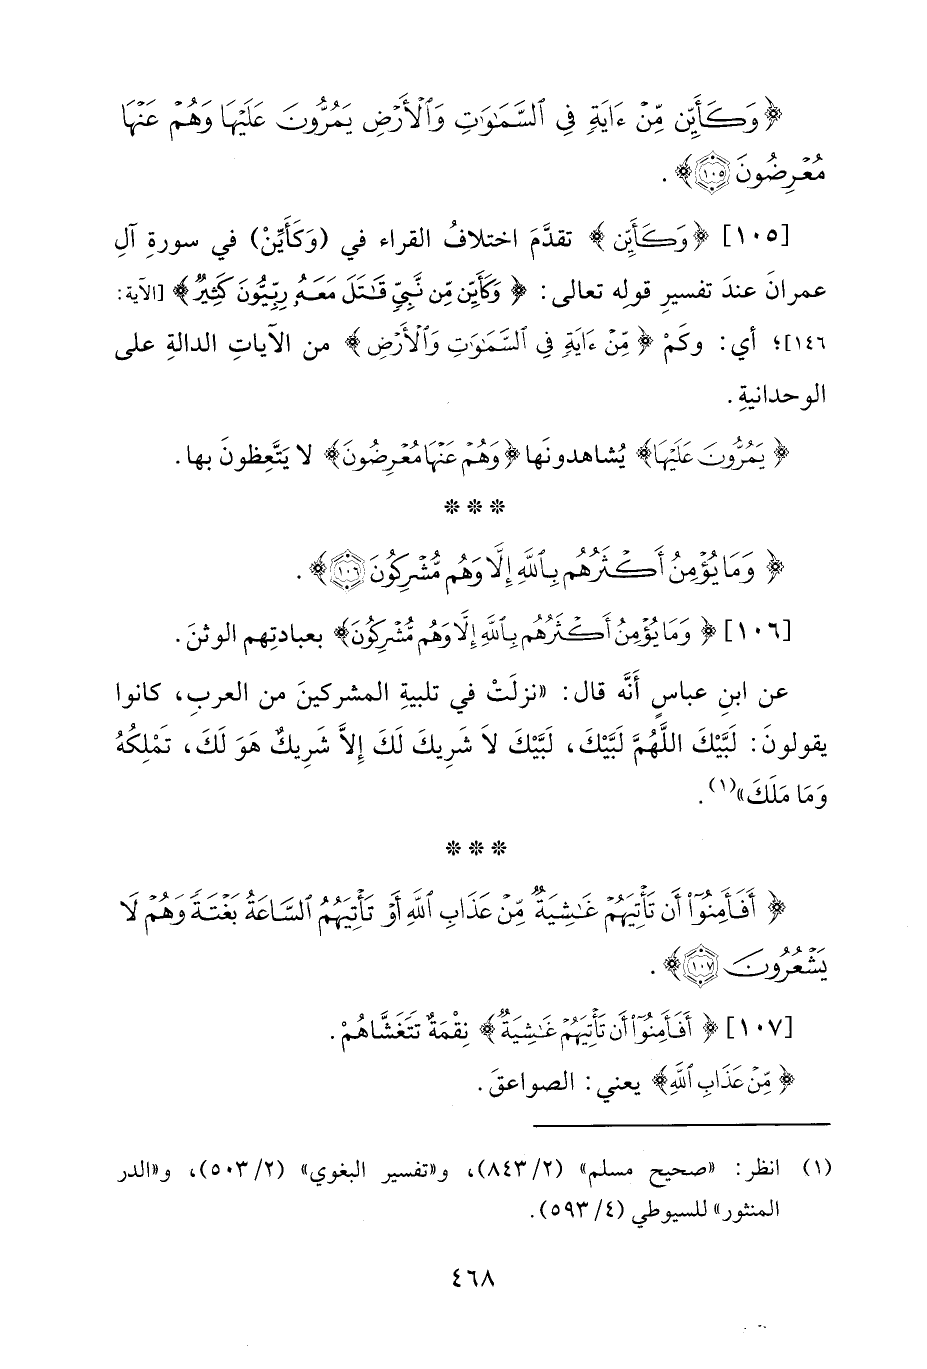 ﴿وَكَأَيِّن مِّنْ ءَايَةٍ فِى ٱلسَّمَٰوَٰتِ وَٱلْأَرْضِ يَمُرُّونَ عَلَيْهَا وَهُمْ عَنْهَا
مُعْرِضُونَ ١٠٥﴾ .
[١٠٥] ﴿وَكَأَيِّن﴾ تقدَّمَ اختلافُ القراء في (وَكَأَيِّنْ) في سورةِ آلِ
عمرانَ عندَ تفسيرِ قوله تعالى: ﴿وَكَأَيِّن مِّن نَّبِىٍّ قَٰتَلَ مَعَهُۥ رِبِّيُّونَ كَثِيرٌ﴾ [الآية:
١٤٦]؛ أي: وكَمْ ﴿مِّنْ ءَايَةٍ فِى ٱلسَّمَٰوَٰتِ وَٱلْأَرْضِ﴾ من الآياتِ الدالةِ على
الوحدانيةِ.
﴿يَمُرُّونَ عَلَيْهَا﴾ يُشاهدونَها ﴿وَهُمْ عَنْهَا مُعْرِضُونَ﴾ لا يَتَّعِظونَ بها.
* * *
﴿وَمَا يُؤْمِنُ أَكْثَرُهُم بِٱللَّهِ إِلَّا وَهُم مُّشْرِكُونَ ١٠٦﴾ .
[١٠٦] ﴿وَمَا يُؤْمِنُ أَكْثَرُهُم بِٱللَّهِ إِلَّا وَهُم مُّشْرِكُونَ﴾ بعبادتِهم الوثنَ.
عن ابنِ عباسٍ أَنَّه قال: «نزلَتْ في تلبيةِ المشركينَ من العربِ، كانوا
يقولونَ: لَبَّيْكَ اللَّهُمَّ لَبَّيْكَ، لَبَّيْكَ لاَ شَرِيكَ لَكَ إِلاَّ شَرِيكٌ هَوَ لَكَ، تَمْلِكُهُ
وَمَا مَلَكَ»(١).
* * *
﴿أَفَأَمِنُوٓا۟ أَن تَأْتِيَهُمْ غَٰشِيَةٌ مِّنْ عَذَابِ ٱللَّهِ أَوْ تَأْتِيَهُمُ ٱلسَّاعَةُ بَغْتَةً وَهُمْ لَا
يَشْعُرُونَ ١٠٧﴾ .
[١٠٧] ﴿أَفَأَمِنُوٓا۟ أَن تَأْتِيَهُمْ غَٰشِيَةٌ﴾ نِقْمَةٌ تَتَغَشَّاهُمْ.
﴿مِّنْ عَذَابِ ٱللَّهِ﴾ يعني: الصواعقَ.
(١) انظر: «صحيح مسلم» (٢/ ٨٤٣)، و«تفسير البغوي» (٢/ ٥٠٣)، و«الدر
المنثور» للسيوطي (٤/ ٥٩٣).
٤٦٨